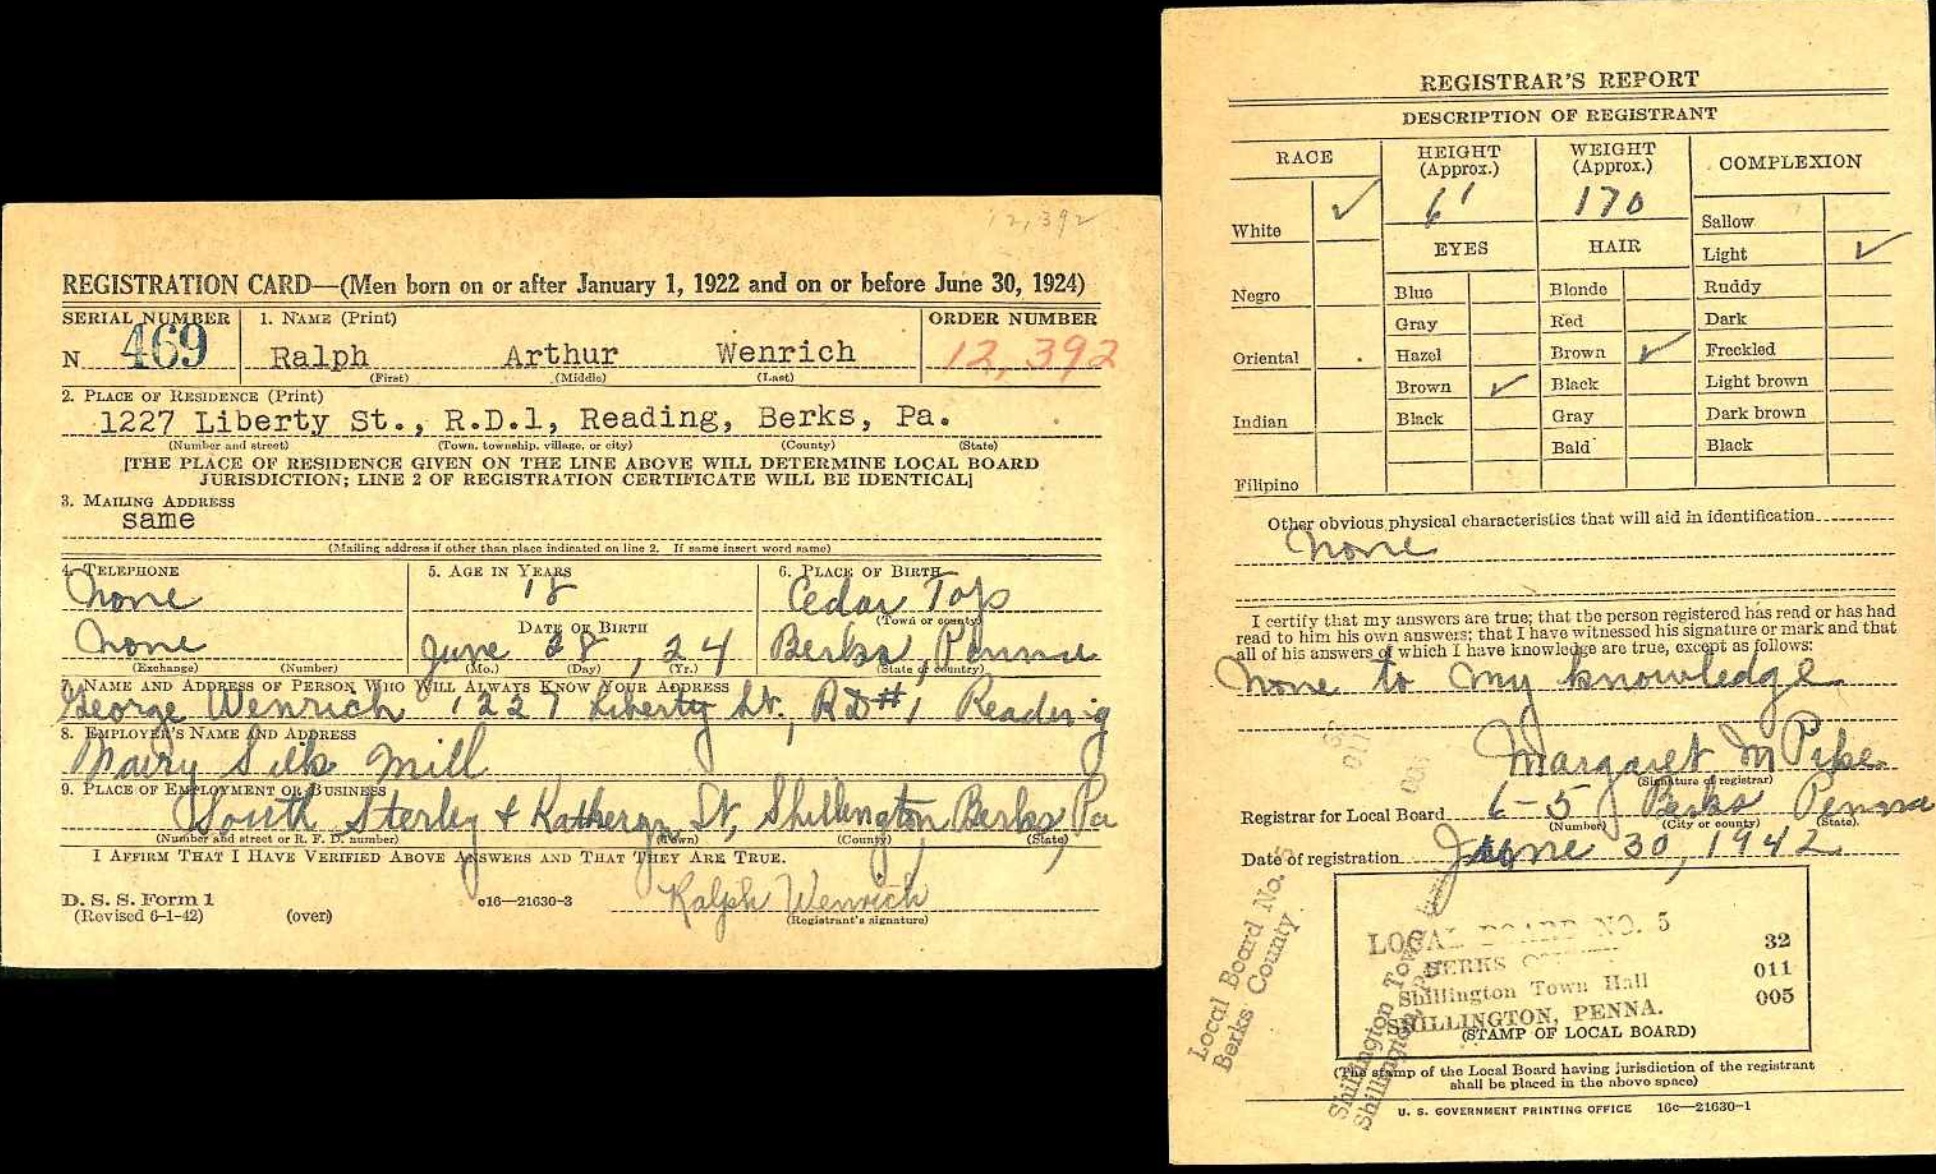 12,392
REGISTRATION CARD—(Men born on or after January 1, 1922 and on or before June 30, 1924)
SERIAL NUMBER 1. NAME (Print) ORDER NUMBER
N 469 Ralph Arthur Wenrich 12,392
(First) (Middle) (Last)
2. PLACE OF RESIDENCE (Print)
1227 Liberty St., R.D.1, Reading, Berks, Pa.
(Number and street) (Town, township, village, or city) (County) (State)
[THE PLACE OF RESIDENCE GIVEN ON THE LINE ABOVE WILL DETERMINE LOCAL BOARD
JURISDICTION; LINE 2 OF REGISTRATION CERTIFICATE WILL BE IDENTICAL]
3. MAILING ADDRESS
same
(Mailing address if other than place indicated on line 2. If same insert word same)
4. TELEPHONE 5. AGE IN YEARS 6. PLACE OF BIRTH
None 18 Cedar Top
DATE OF BIRTH (Town or county)
None June 28, 24 Berks, Penna
(Exchange) (Number) (Mo.) (Day) (Yr.) (State or country)
7. NAME AND ADDRESS OF PERSON WHO WILL ALWAYS KNOW YOUR ADDRESS
George Wenrich 1227 Liberty St., RD#1 Reading
8. EMPLOYER'S NAME AND ADDRESS
Silk Mill
9. PLACE OF EMPLOYMENT OR BUSINESS
South Sterley + St, Shillington Berks, Pa
(Number and street or R. F. D. number) (Town) (County) (State)
I AFFIRM THAT I HAVE VERIFIED ABOVE ANSWERS AND THAT THEY ARE TRUE.
D. S. S. Form 1
(Revised 6-1-42) (over) c16—21630-3 Ralph Wenrich
(Registrant's signature)
REGISTRAR'S REPORT
DESCRIPTION OF REGISTRANT
RACE HEIGHT (Approx.) WEIGHT (Approx.) COMPLEXION
6' 170
White ✓ Sallow
EYES HAIR Light ✓
Negro Blue Blonde Ruddy
Gray Red Dark
Oriental Hazel Brown ✓ Freckled
Brown ✓ Black Light brown
Indian Black Gray Dark brown
Bald Black
Filipino
Other obvious physical characteristics that will aid in identification
None
I certify that my answers are true; that the person registered has read or has had
read to him his own answers; that I have witnessed his signature or mark and that
all of his answers of which I have knowledge are true, except as follows:
None to my knowledge
Margaret M Pike
(Signature of registrar)
Registrar for Local Board 6-5 Berks Penna
(Number) (City or county) (State)
Date of registration June 30, 1942
Local Board No. 5
Berks County
Shillington Town
Shillington,
LOCAL BOARD NO. 5 32
BERKS COUNTY 011
Shillington Town Hall 005
SHILLINGTON, PENNA.
(STAMP OF LOCAL BOARD)
(The stamp of the Local Board having jurisdiction of the registrant
shall be placed in the above space)
U. S. GOVERNMENT PRINTING OFFICE 16c—21630-1